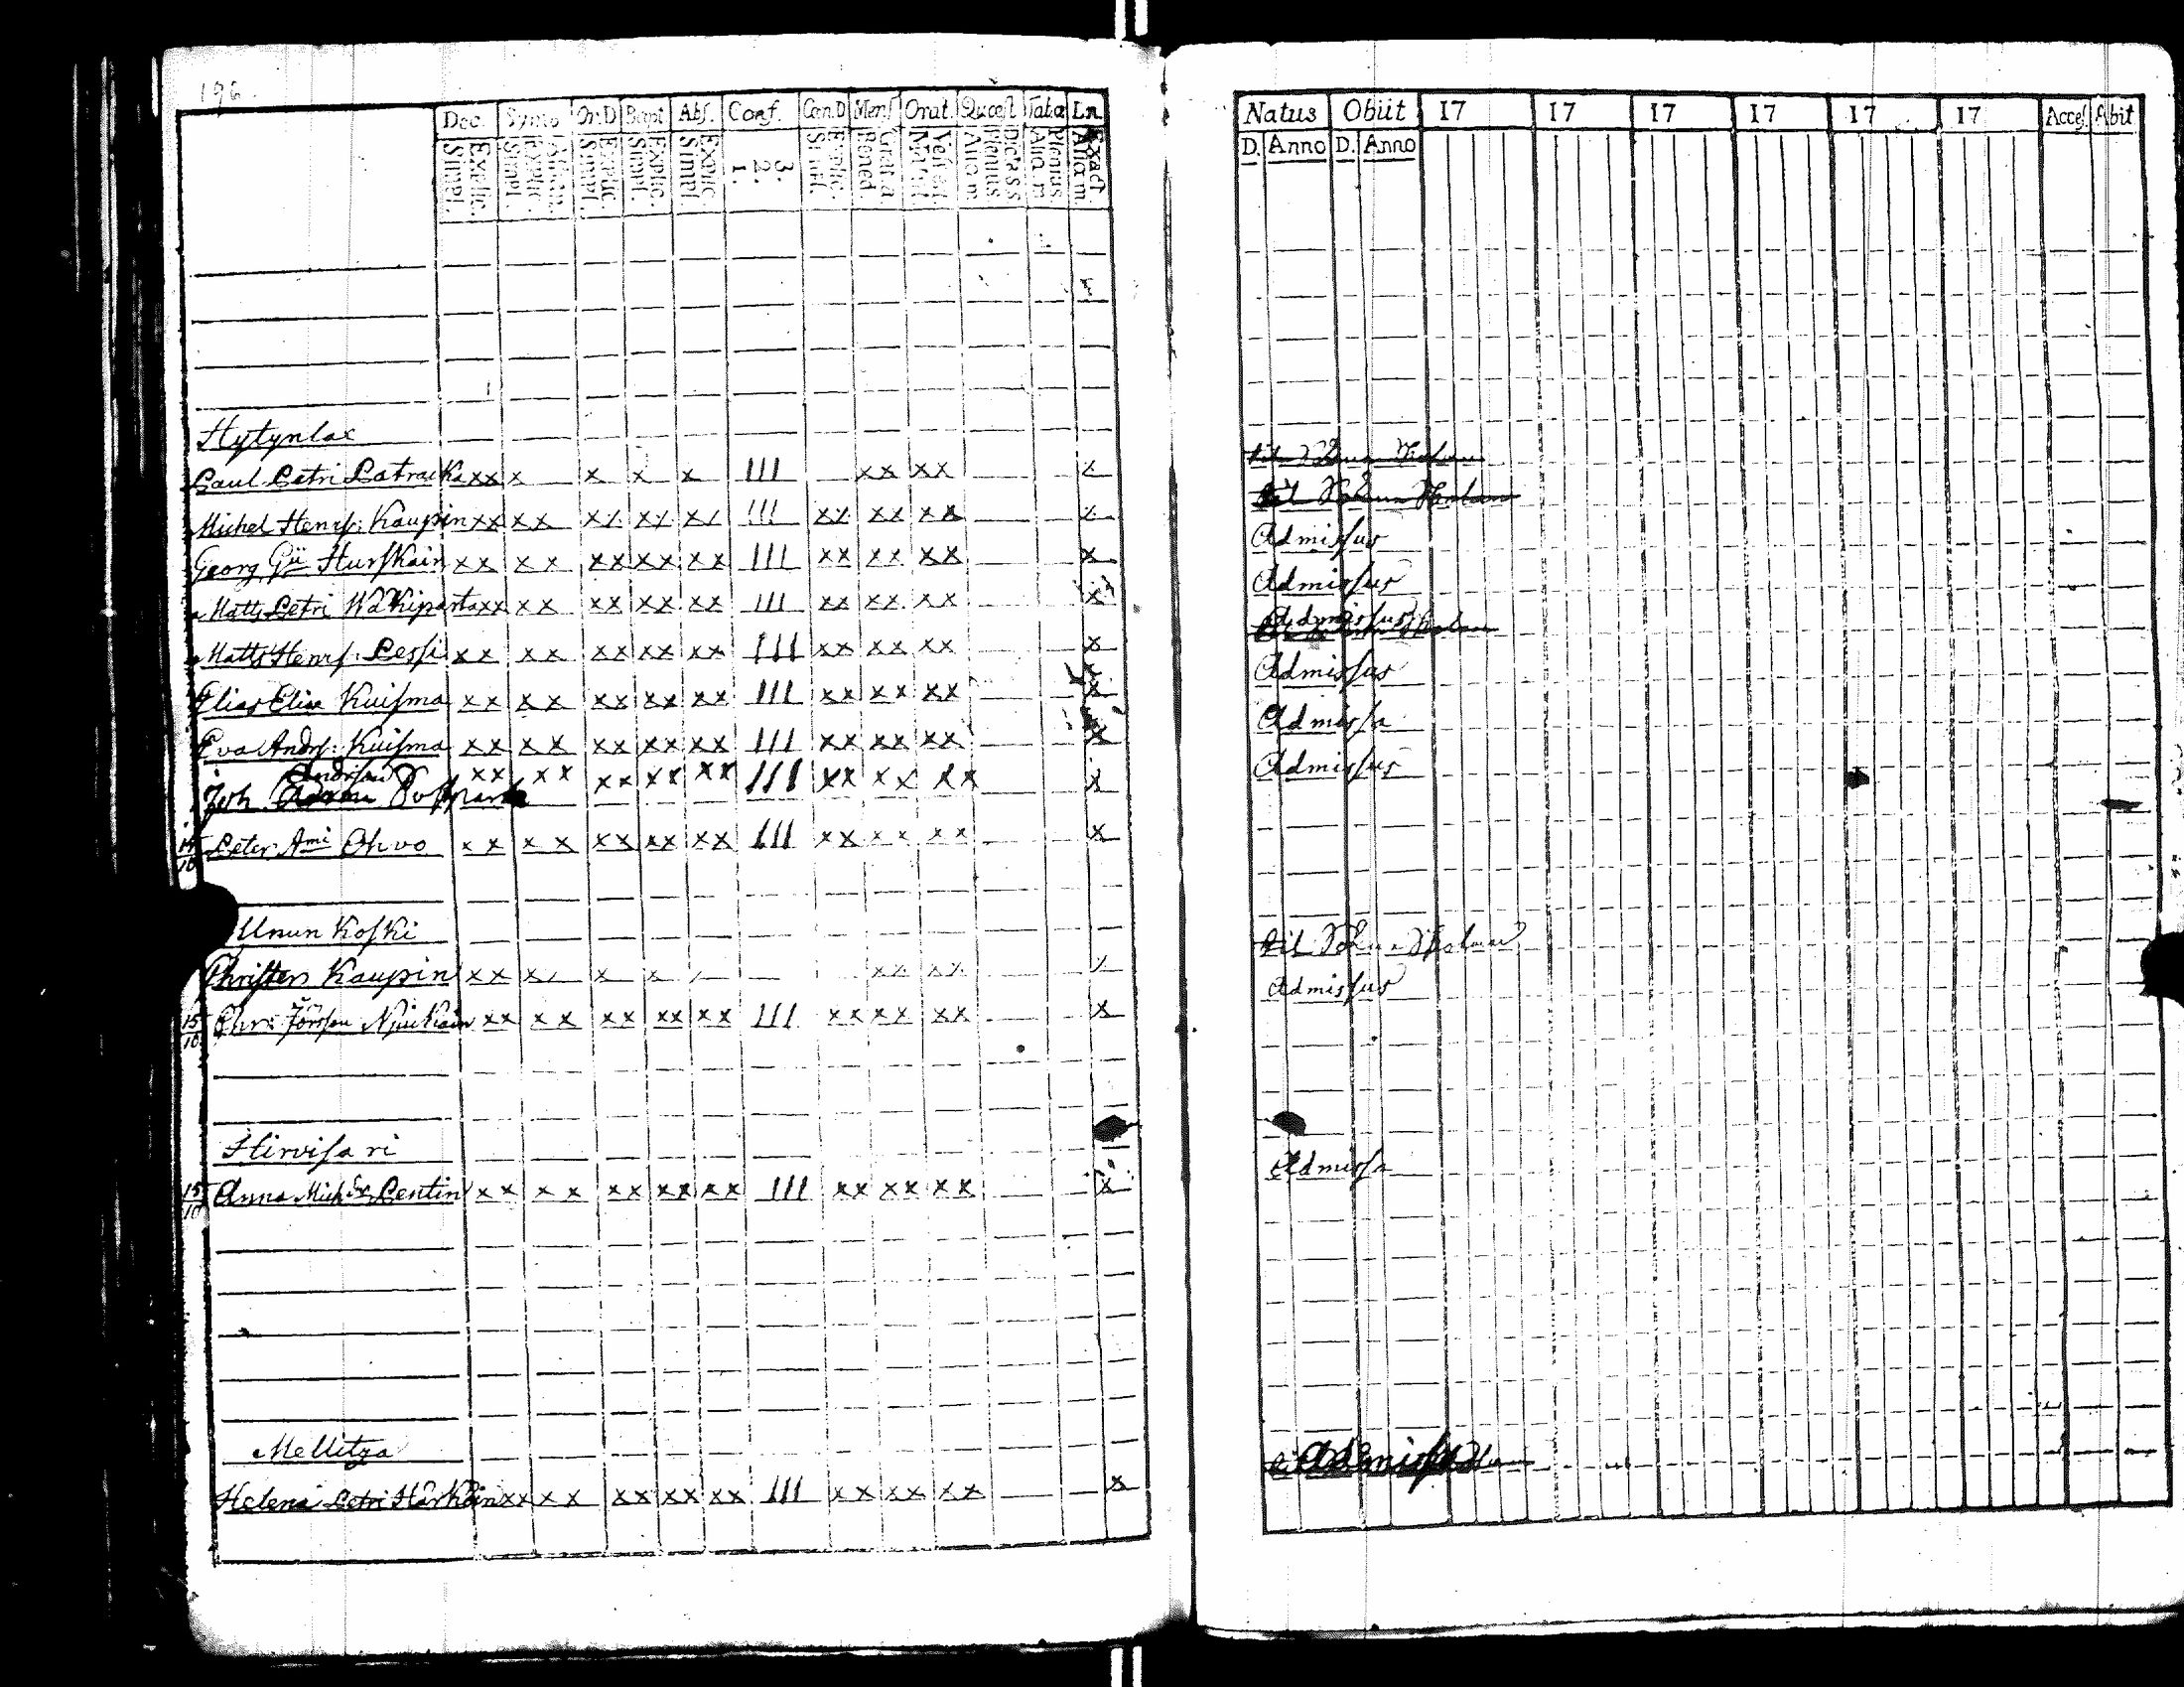 196.
Dec. Symb Or.D Bapt Abs. Conf. Cœn.D Mens Orat. Quæst Tabœ Ln.
Explic. Simpl. Explic. Simpl. Explic. Simpl. Explic. Simpl. Explic. Simpl. 3. 2. 1. Explic. Simpl. Grat. a. Bened. Vesp. Mat. Dicta S.S. Plenius. Aliq. m. Plenius Aliq. m. Exact. Aliq. m.
Hytynlax
Paul Petri Patracka xx x x x x III xx xx x
Michel Henrs: Kaupin xx xx xx xx xx III xx xx xx x
Georg Hurskain xx xx xx xx xx III xx xx xx x
Matts Petri Wäkiparta xx xx xx xx xx III xx xx xx x
Matts Henrs: Pessi xx xx xx xx xx III xx xx xx x
Elias Eliæ Kuisma xx xx xx xx xx III xx xx xx x
Eva Andrs: Kuisma xx xx xx xx xx III xx xx xx x
Andrsen
Joh. xx xx xx xx xx III xx xx xx x
14/10 Peter Ami Ohvo xx xx xx xx xx III xx xx xx x
Unun Koski
Christer Kaupin xx x x x xx xx x
15/10 Chr: Jörssen Njukain xx xx xx xx xx III xx xx xx x
Hirvisari
15/10 Anna Mich Dr Pentin xx xx xx xx xx III xx xx xx x
Mellitza
Helena Petri Härköin xx xx xx xx xx III xx xx xx x
Natus Obiit 17 17 17 17 17 17 Acces Abit
D. Anno D. Anno
Admissus
Admissus
Admissus
Admissus
Admissa
Admissus
til
Admissus
Admissa